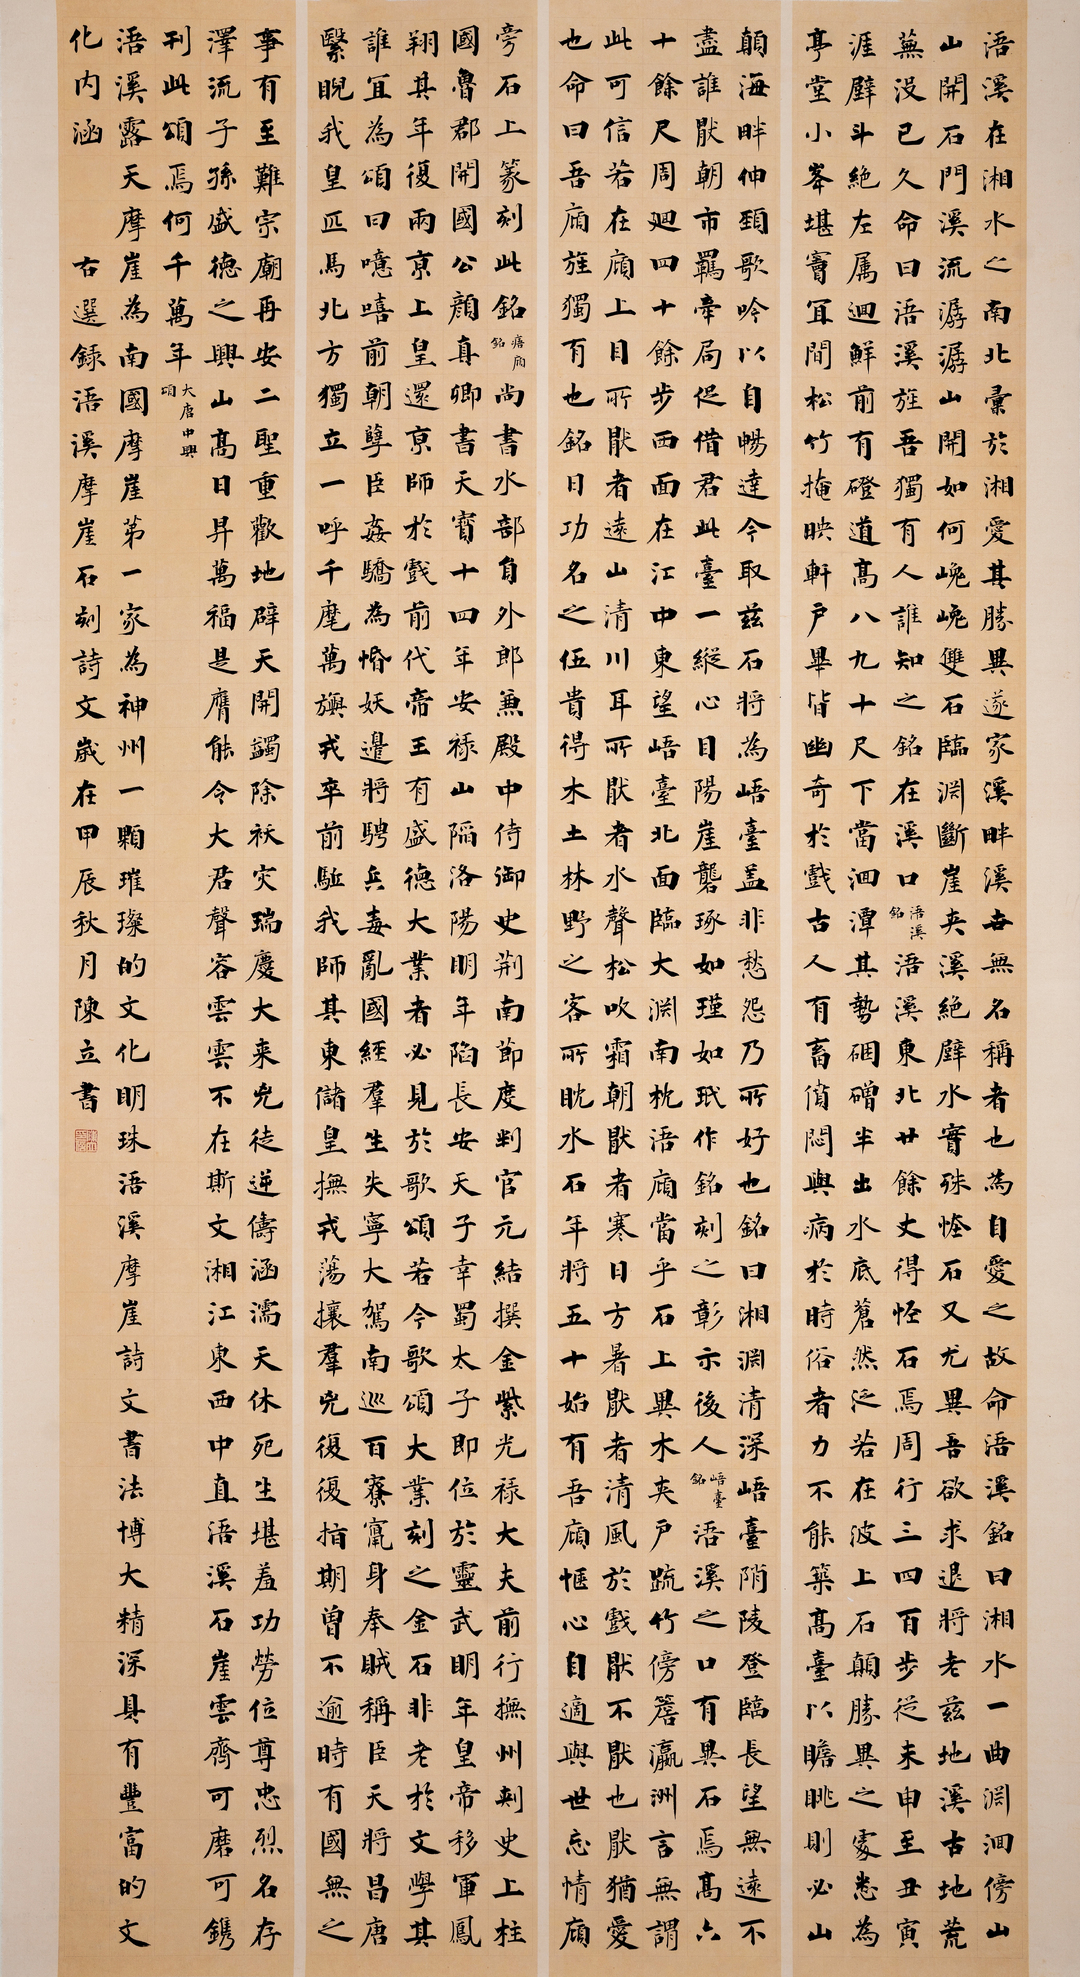 浯溪在湘水之南北彙於湘愛其勝異遂家溪畔溪世無名稱者也為自愛之故命浯溪銘曰湘水一曲淵洄傍山
山開石門溪流潺潺山開如何巉巉雙石臨淵斷崖夾溪絕壁水實殊怪石又尤異吾欲求退將老茲地溪古地荒
蕪沒已久命曰浯溪旌吾獨有人誰知之銘在溪口浯溪銘浯溪東北廿餘丈得怪石焉周行三四百步從未申至丑寅
涯壁斗絕左属迴鮮前有磴道高八九十尺下當洄潭其勢硱磳半出水底蒼然泛若在波上石顛勝異之處悉為
亭堂小峯堪竇宜間松竹掩映軒戶畢皆幽奇於戲古人有畜僨悶與病於時俗者力不能築高臺以瞻眺則必山
顛海畔伸頸歌吟以自暢達今取茲石將為峿臺蓋非愁怨乃所好也銘曰湘淵清深峿臺陗陵登臨長望無遠不
盡誰厭朝市羈牽局促借君此臺一縱心目陽崖礱琢如瑾如珉作銘刻之彰示後人峿臺銘浯溪之口有異石焉高六
十餘尺周迴四十餘步西面在江中東望峿臺北面臨大淵南枕浯廎當乎石上異木夾戶疏竹傍簷瀛洲言無謂
此可信若在廎上目所厭者遠山清川耳所厭者水聲松吹霜朝厭者寒日方暑厭者清風於戲厭不厭也厭猶愛
也命曰吾廎旌獨有也銘曰功名之伍貴得木土林野之客所眈水石年將五十始有吾廎愜心自適與世忘情廎
旁石上篆刻此銘廎銘尚書水部員外郎兼殿中侍御史荊南節度判官元結撰金紫光祿大夫前行撫州刺史上柱
國魯郡開國公顏真卿書天寶十四年安祿山陷洛陽明年陷長安天子幸蜀太子即位於靈武明年皇帝移軍鳳
翔其年復兩京上皇還京師於戲前代帝王有盛德大業者必見於歌頌若今歌頌大業刻之金石非老於文學其
誰宜為頌曰噫嘻前朝孽臣姦驕為惛妖邊將騁兵毒亂國經羣生失寧大駕南巡百寮竄身奉賊稱臣天將昌唐
繄睨我皇匹馬北方獨立一呼千麾萬旟戎卒前驅我師其東儲皇撫戎蕩攘羣兇復復指期曾不逾時有國無之
事有至難宗廟再安二聖重歡地辟天開蠲除祅災瑞慶大来兇徒逆儔涵濡天休死生堪羞功勞位尊忠烈名存
澤流子孫盛德之興山高日昇萬福是膺能令大君聲容雲雲不在斯文湘江東西中直浯溪石崖雲齊可磨可鐫
刊此頌焉何千萬年大唐中興頌
浯溪露天摩崖為南國摩崖第一家為神州一顆璀璨的文化明珠浯溪摩崖詩文書法博大精深具有豐富的文
化内涵 右選録浯溪摩崖石刻詩文歲在甲辰秋月陳立書